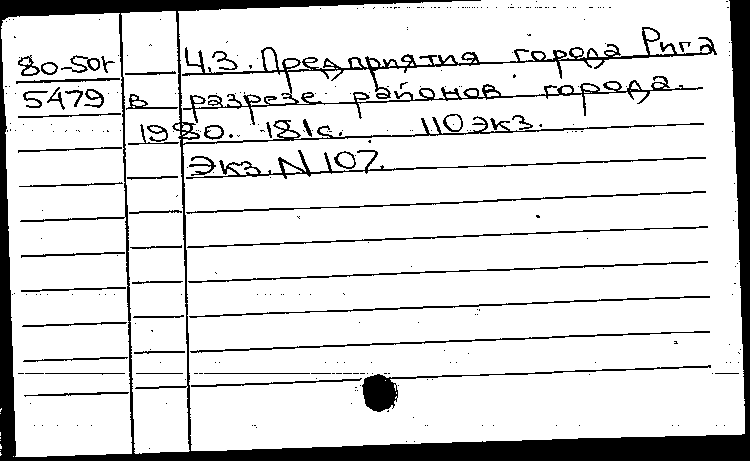 80-50г Ч.3. Предприятия города Рига
5479 в разрезе районов города.
1980. 181с. 110 экз.
Экз. N 107.